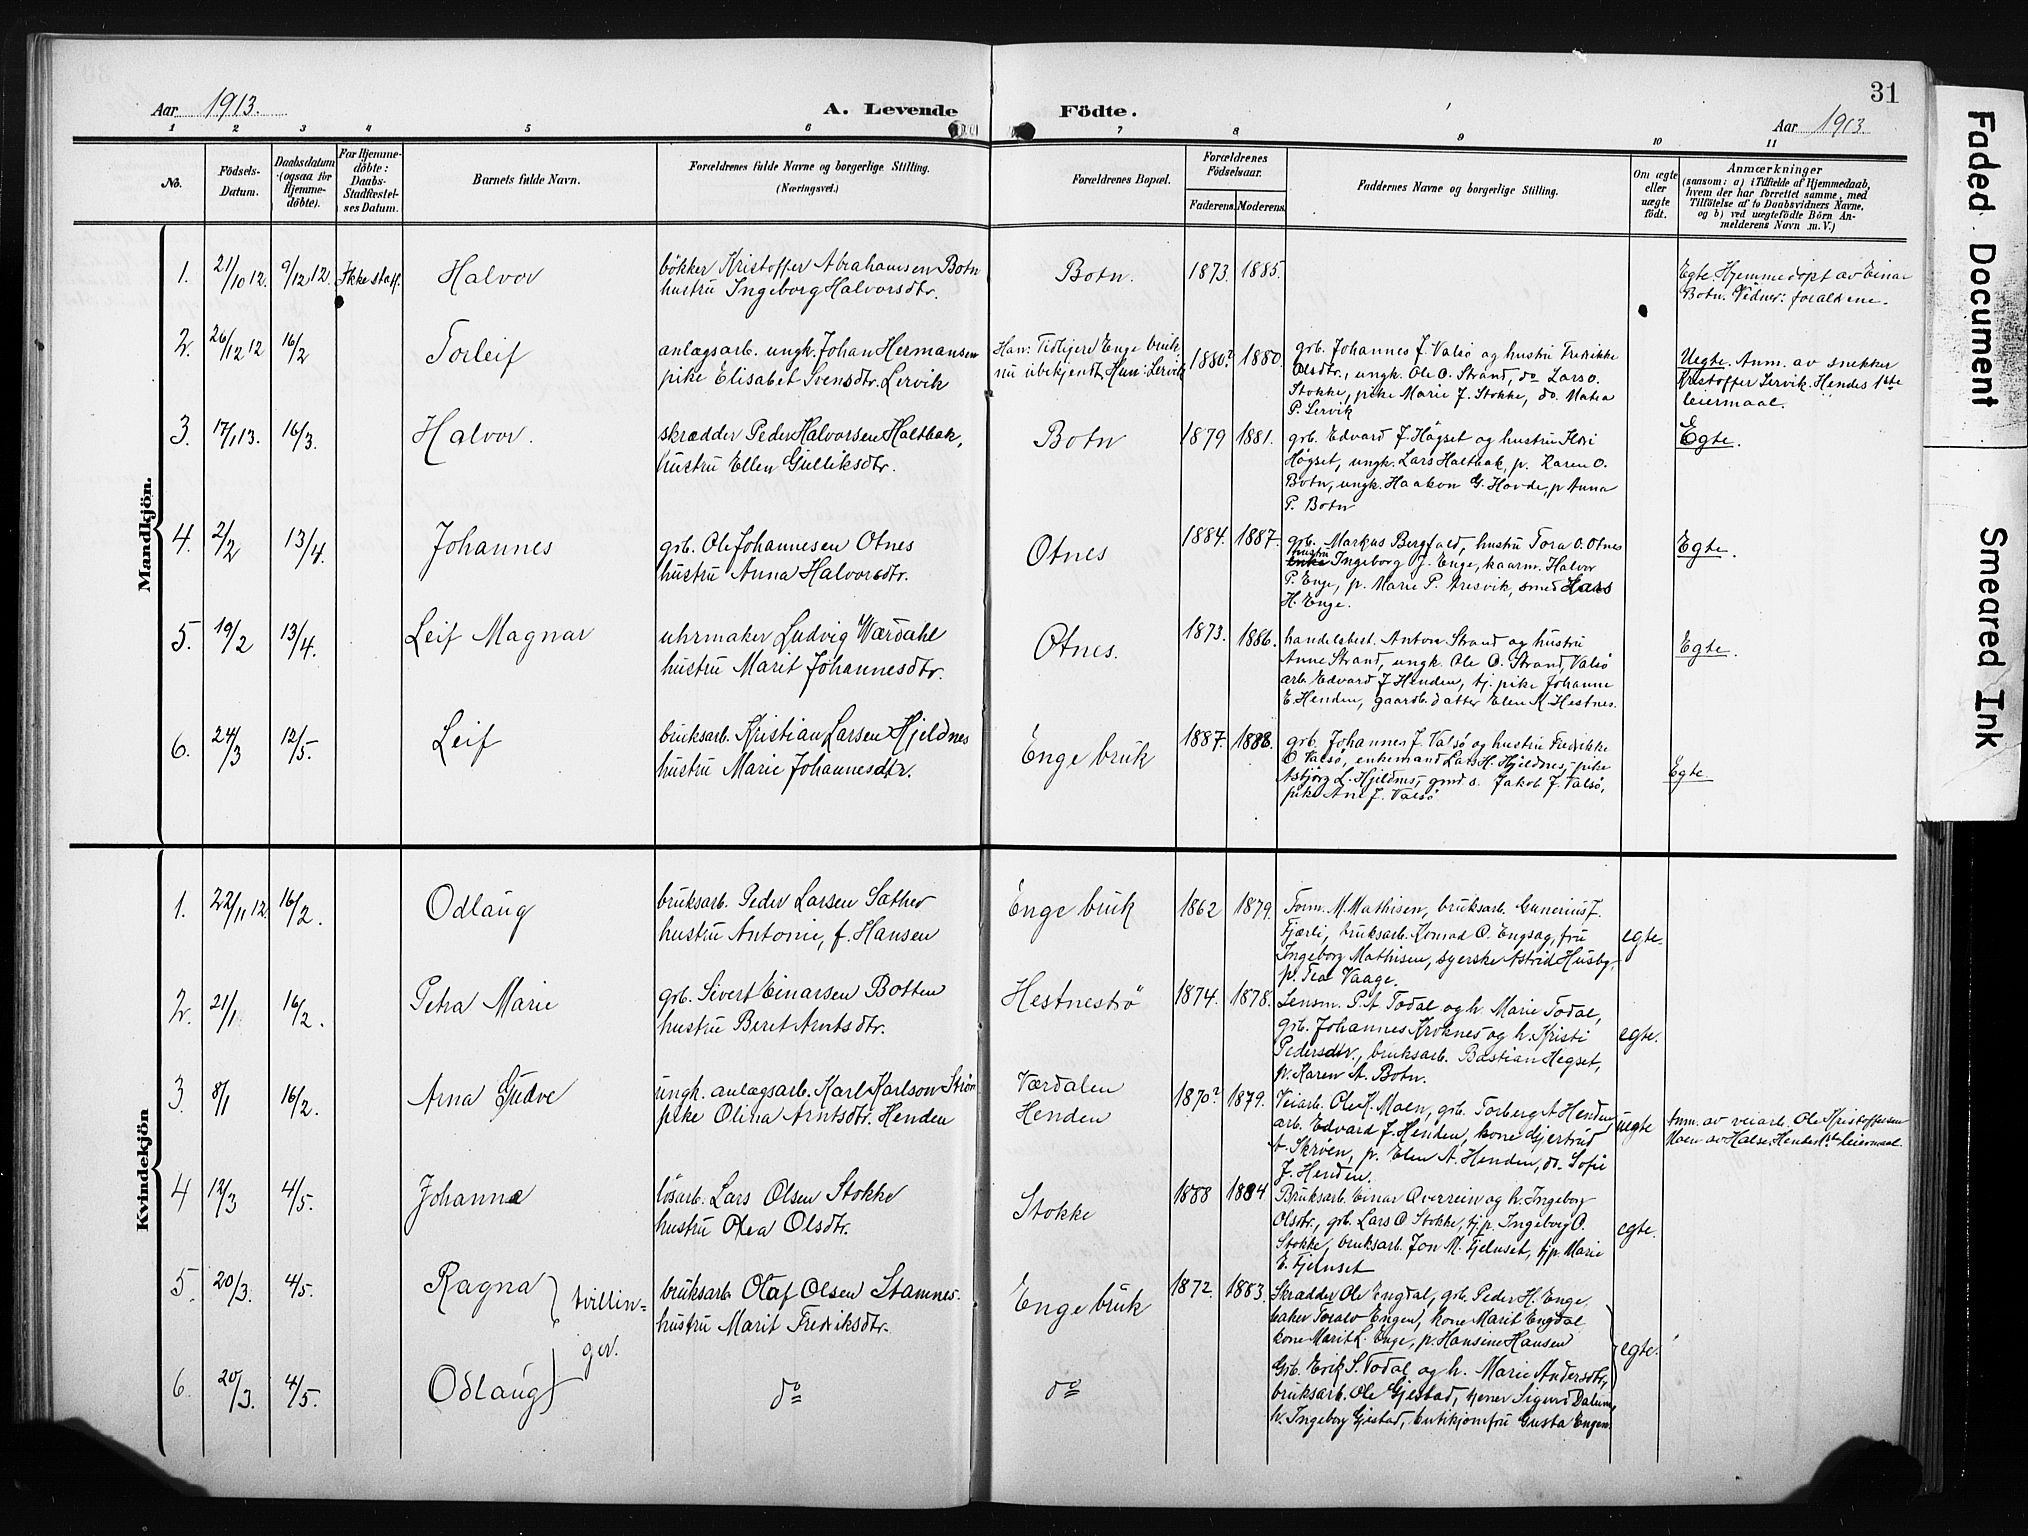 31
Aar 1913.
A. Levende Födte.
Aar 1913.
1 2 3 4 5 6 7 8 9 10 11
No.
Födsels-Datum.
Daabsdatum (ogsaa for Hjemme-döbte).
For Hjemme-döbte: Daabs-Stadfæstel-ses Datum.
Barnets fulde Navn.
Forældrenes fulde Navne og borgerlige Stilling. (Næringsvei.)
Forældrenes Bopæl.
Forældrenes Födselsaar.
Faderens. Moderens.
Faddernes Navne og borgerlige Stilling.
Om ægte eller uægte födt.
Anmærkninger
(saasom: a) i Tilfælde af Hjemmedaab, hvem der har forrettet samme, med Tilföielse af to Daabsvidners Navne, og b) ved uægtefödte Börn An-melderens Navn m. V.)
Mandkjön.
1. 21/10 12. 9/12 12. Ikke stadf. Halvor
bökker Kristoffer Abrahamsen Botn
hustru Ingeborg Halvorsdtr.
Botn. 1873. 1885.
Egte. Hjemmedöpt av Einar
Botn. Vidner: forældrene.
2. 26/12 12 16/2 Torleif
anlægsarb. ungk. Johan Hermansen
pike Elisabet Svensdtr. Lervik
Han: Tidligere Enge bruk
nu ubekjendt, Hun: Lervik
1880? 1880.
grb. Johannes J. Valsö og hustru Fredrikke
Olsdtr., ungk. Ole O. Strand, do Lars O.
Stokke, pike Marie J. Stokke, do. Matea
P. Lervik
Uegte. Anm. av snekker
Kristoffer Lervik. Hendes 1ste
leiermaal.
3. 17/1 13. 16/3. Halvor.
skrædder Peder Halvorsen Haltbak,
hustru Ellen Gulliksdtr.
Botn 1879 1881.
grb. Edvard J. Högset og hustru
Högset, ungk. Lars Haltbak, p. Karen O.
Botn, ungk. Haakon G. Hovde, p Anna
P. Botn
Egte.
4. 2/2 13/4. Johannes
grb. Ole Johannesen Otnes
hustru Anna Halvorsdtr.
Otnes 1884. 1887.
grb. Markus Bergfald, hustru Tora O. Otnes
hustru
enke Ingeborg O. Enge, kaarm. Halvor
P. Enge, p. Marie P. Aresvik, smed Hans
H. Enge.
Egte.
5. 19/2 13/4. Leif Magnar
uhrmaker Ludvig Værdahl
hustru Marit Johannesdtr.
Otnes. 1873. 1886.
handelsbest. Anton Strand og hustru
Anne Strand, ungk. Ole O. Strand, Valsö
arb. Edvard J Henden, tj. pike Johanne
E. Henden, gaardb. datter Elen K Hestnes.
Egte.
6. 24/3 12/5. Leif
bruksarb. Kristian Larsen Hjeldnes
hustru Marie Johannesdtr.
Enge bruk 1887. 1888.
grb. Johannes J. Valsö og hustru Fredrikke
O Valsö, enkemand Lars H. Hjeldnes, pike
Asbjörg L. Hjeldnes, grd s. Jakob J. Valsö,
pike Ane J. Valsö
Egte
Kvindekjön
1. 22/11 12. 16/2. Odlaug
bruksarb. Peder Larsen Sæther
hustru Antonie, f. Hansen
Enge bruk 1862 1879.
Form. M. Mathisen, bruksarb. Gunerius J.
Fjærli, bruksarb. Konrad O. Engsag, fru
Ingeborg Mathisen, syerske Astrid Husby,
p. Tea Vaage.
egte.
2. 21/1 16/2. Petra Marie
grb. Sivert Einarsen Botten
hustru Beret Arntsdtr.
Hestneströ 1874. 1878.
Lensm. P. A. Todal og h. Marie Todal,
grb. Johannes Kroknes og h. Kristi
Pedersdtr., bruksarb. Bastian Hegset,
p. Karen A. Botn.
egte.
3. 8/1 16/2. Arna Gudve
ungk. anlægsarb. Karl Karlson Ström
pike Olina Arntsdtr. Henden
Værdalen
Henden
1870? 1879.
Veiarb. Ole K. Moen, grb. Torberg A Henden,
arb. Edvard J. Henden, kone Gjertrud
A. Skröen, p. Elen A. Henden, do Sofie
J. Henden.
uegte
Anm. av veiarb. Ole Kristoffersen
Moen av Halse. Hendes 1ste leiermaal.
4 12/3 4/5. Johanne
lösarb. Lars Olsen Stokke
hustru Olea Olsdtr.
Stokke 1888 1884
Bruksarb. Einar Overrein og h. Ingeborg
Olsdtr., grb. Lars O Stokke, tj.p. Ingeborg O.
Stokke, bruksarb. Jon M. Fjelnset, tjp. Marie
E. Fjelnset
egte.
5. 20/3. 4/5. Ragna
tvillin-
ger.
bruksarb. Olaf Olsen Stamnes.
hustru Marit Fredriksdtr.
Enge bruk 1872. 1883.
Skrædder Ole Engdal, grb. Peder H. Enge,
baker Toralv Engen, kone Marit Engdal
kone Marit L. Enge, p. Hansine Hansen
egte.
6. 20/3. 4/5. Odlaug
do do
Grb. Erik S. Todal og h. Marie Andersdtr,
bruksarb. Ole Gjestad, tjener Sigurd Dalum,
h. Ingeborg Gjestad, butikjomfru Gusta Engen.
Faded Document
Smeared Ink